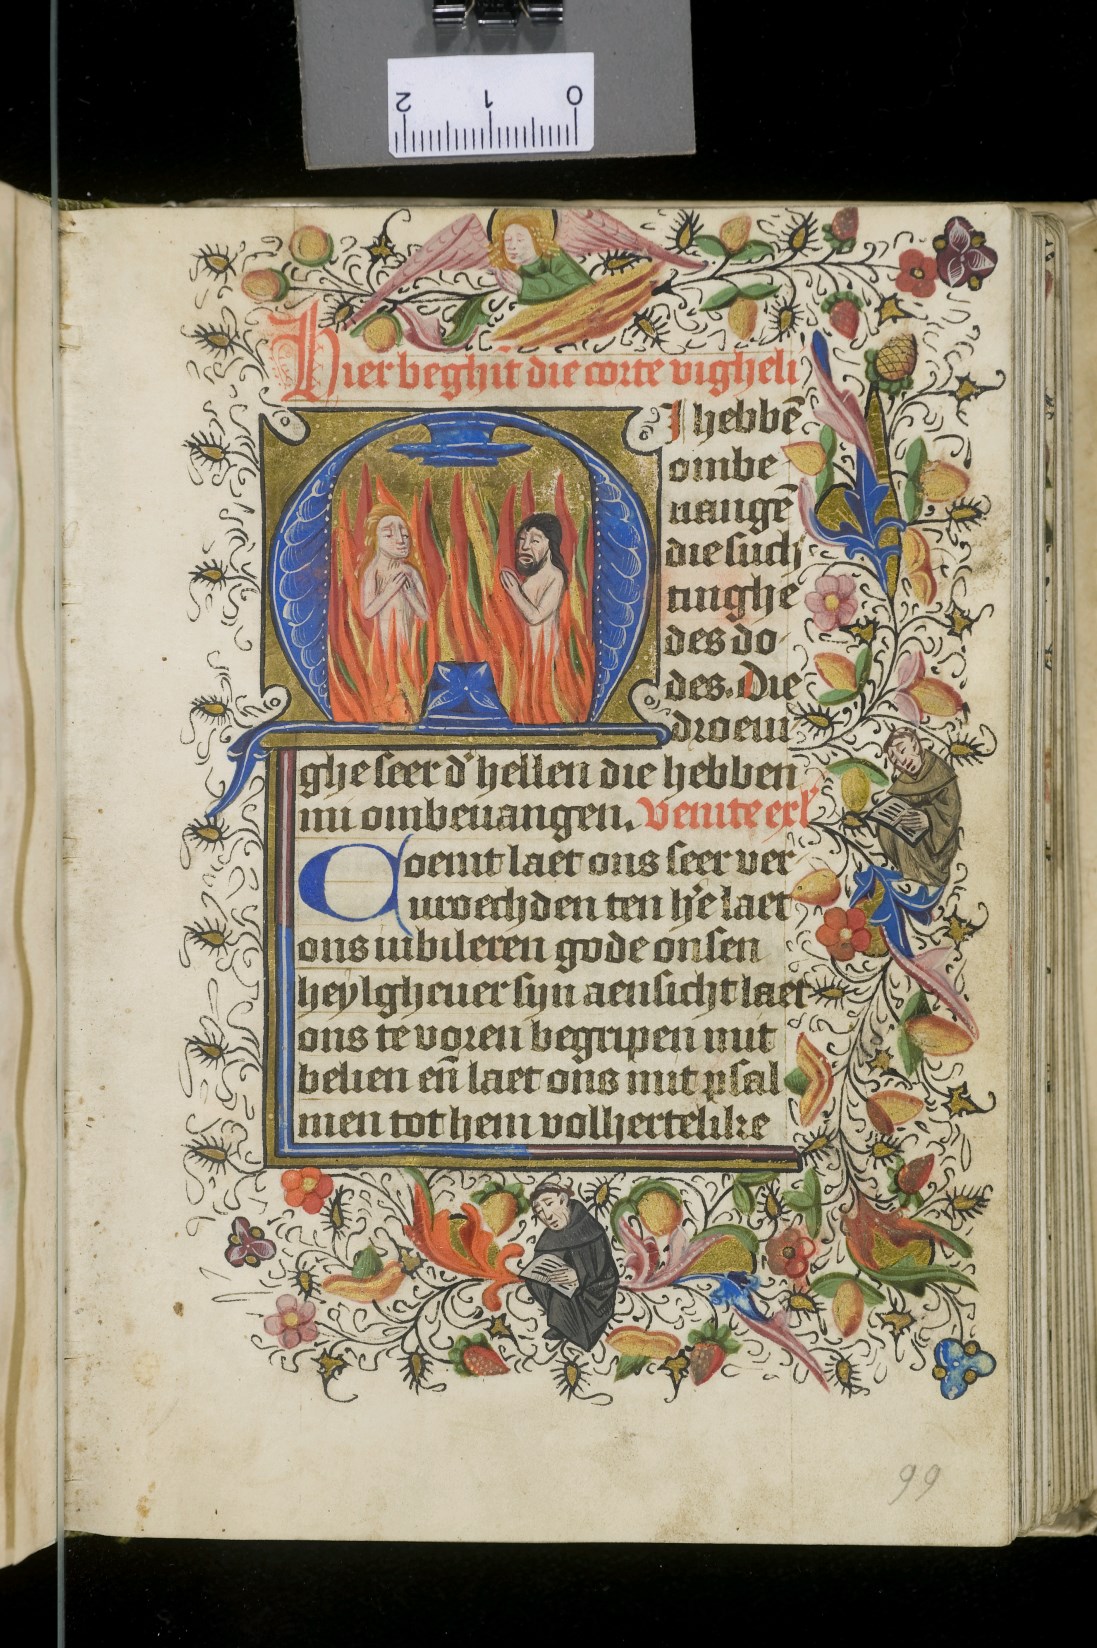 2 1 0
Hier beghīt die corte vigheli
MI hebbē
ombe
uangē
die such
tinghe
des do
des. Die
droeui
ghe seer d' hellen die hebben
mi ombeuangen. Venite exl'
Coemt laet ons seer ver
uroechden ten h'e laet
ons iubileren gode onsen
heylgheuer sijn aensicht laet
ons te voren begripen mit
belien eñ laet ons mit psal
men tot hem volhertelike
99